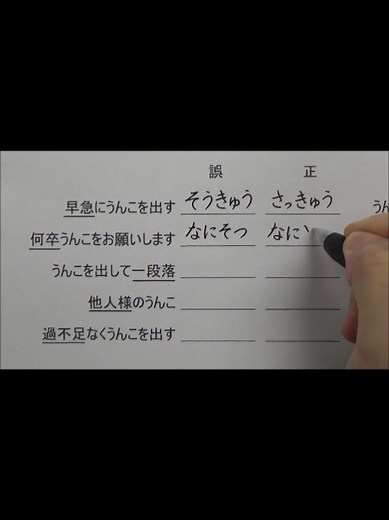 誤 正
早急にうんこを出す そうきゅう さっきゅう
何卒うんこをお願いします なにそつ なに
うんこを出して一段落
他人様のうんこ
過不足なくうんこを出す
うん